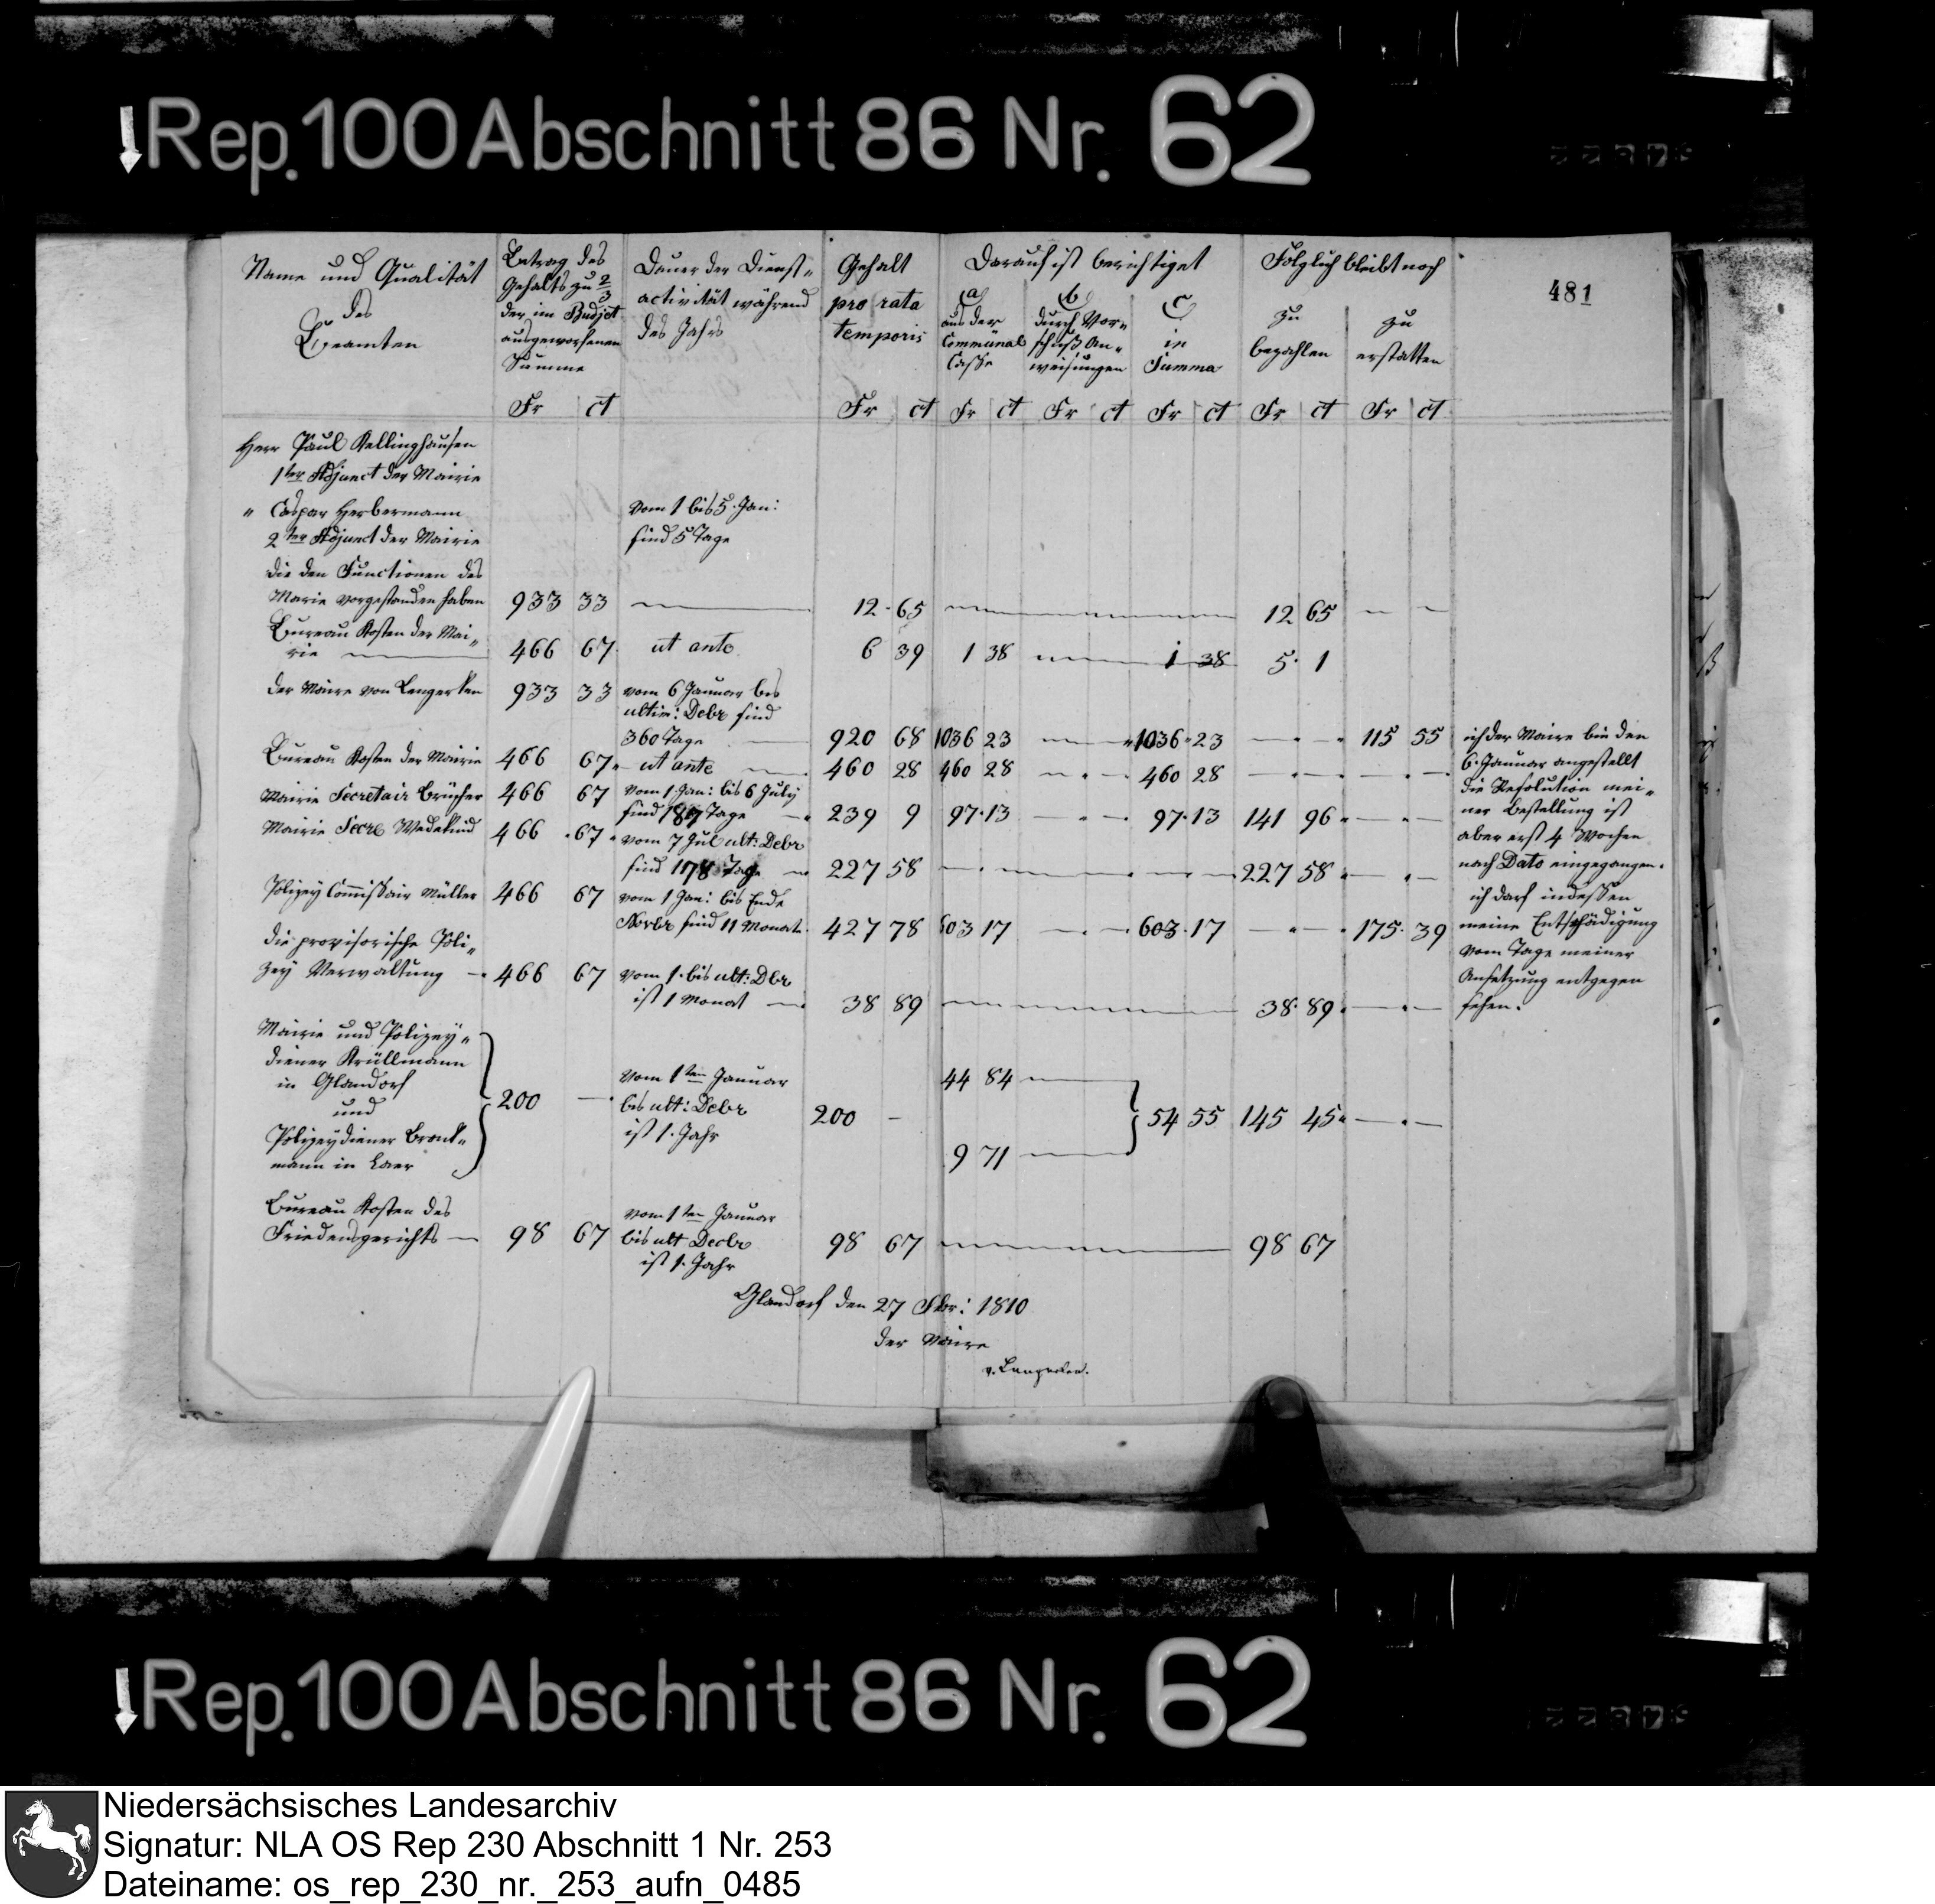 Rep. 100 Abschnitt 86 Nr. 62
481
Name und Qualität
des
Beamten
Betrag des
Gehalts zu 2/3
der im Budjet
ausgeworfenen
Summe
Dauer der Dienst-
activität während
des Jahrs
Gehalt
pro rata
temporis
Darauf ist berichtiget
(a)
aus der
Communal
Casse
(b)
durch Vor-
schuß An-
weisungen
C
in
Summa
Folglich bleibt noch
zu
bezahlen
zu
erstatten
Fr ct Fr ct Fr ct Fr ct Fr ct Fr ct Fr ct
Herr Paul Kellinghausen
1ter Adjunct der Mairie
" Caspar Herbermann
2ter Adjunct der Mairie
die den Functionen des
Marie vorgestanden haben 933 33
vom 1 bis 5. Jan:
sind 5 Tage
12 65 12 65
Bureau Kosten der Mai-
rie 466 67 ut ante 6 39 1 38 1 38 5 1
der Maire von Lengerken 933 33 vom 6 Januar bis
ultim: Debr sind
360 Tage 920 68 1036 23 1036 23 115 55
Bureau Kosten der Mairie 466 67 ut ante 460 28 460 28 460 28
Mairie Secretair Brücher 466 67 vom 1 Jan: bis 6 July
sind 187 Tage 239 9 97 13 97 13 141 96
Mairie Secre Wedekind 466 67 vom 7 Jul ult: Debr
sind 178 Tage 227 58 227 58
Polizey Commissair Müller 466 67 vom 1 Jan: bis Ende
Novbr sind 11 Monat 427 78 603 17 603 17 175 39
die provisorische Poli-
zey Verwaltung 466 67 vom 1. bis ult: Dbr
ist 1 Monat 38 89 38 89
Mairie und Polizey-
diener Krüllmann
in Glandorf
und
Polizeydiener Brock-
mann in Laer
200 —
vom 1ten Januar
bis ult: Debr
ist 1. Jahr
200 —
44 84
9 71
54 55 145 45
Bureau Kosten des
Friedensgerichts 98 67
vom 1ten Januar
bis ult Decbr
ist 1. Jahr
98 67 98 67
ich der Maire bin den
6. Januar angestellt
die Resolution mei-
ner Bestellung ist
aber erst 4 Wochen
nach Dato eingegangen.
ich darf indessen
meine Entschädigung
vom Tage meiner
Ansetzung entgegen
sehen.
Glandorf den 27 1810
der Maire
v. Lengerken.
Rep. 100 Abschnitt 86 Nr. 62
Niedersächsisches Landesarchiv
Signatur: NLA OS Rep 230 Abschnitt 1 Nr. 253
Dateiname: os_rep_230_nr._253_aufn_0485